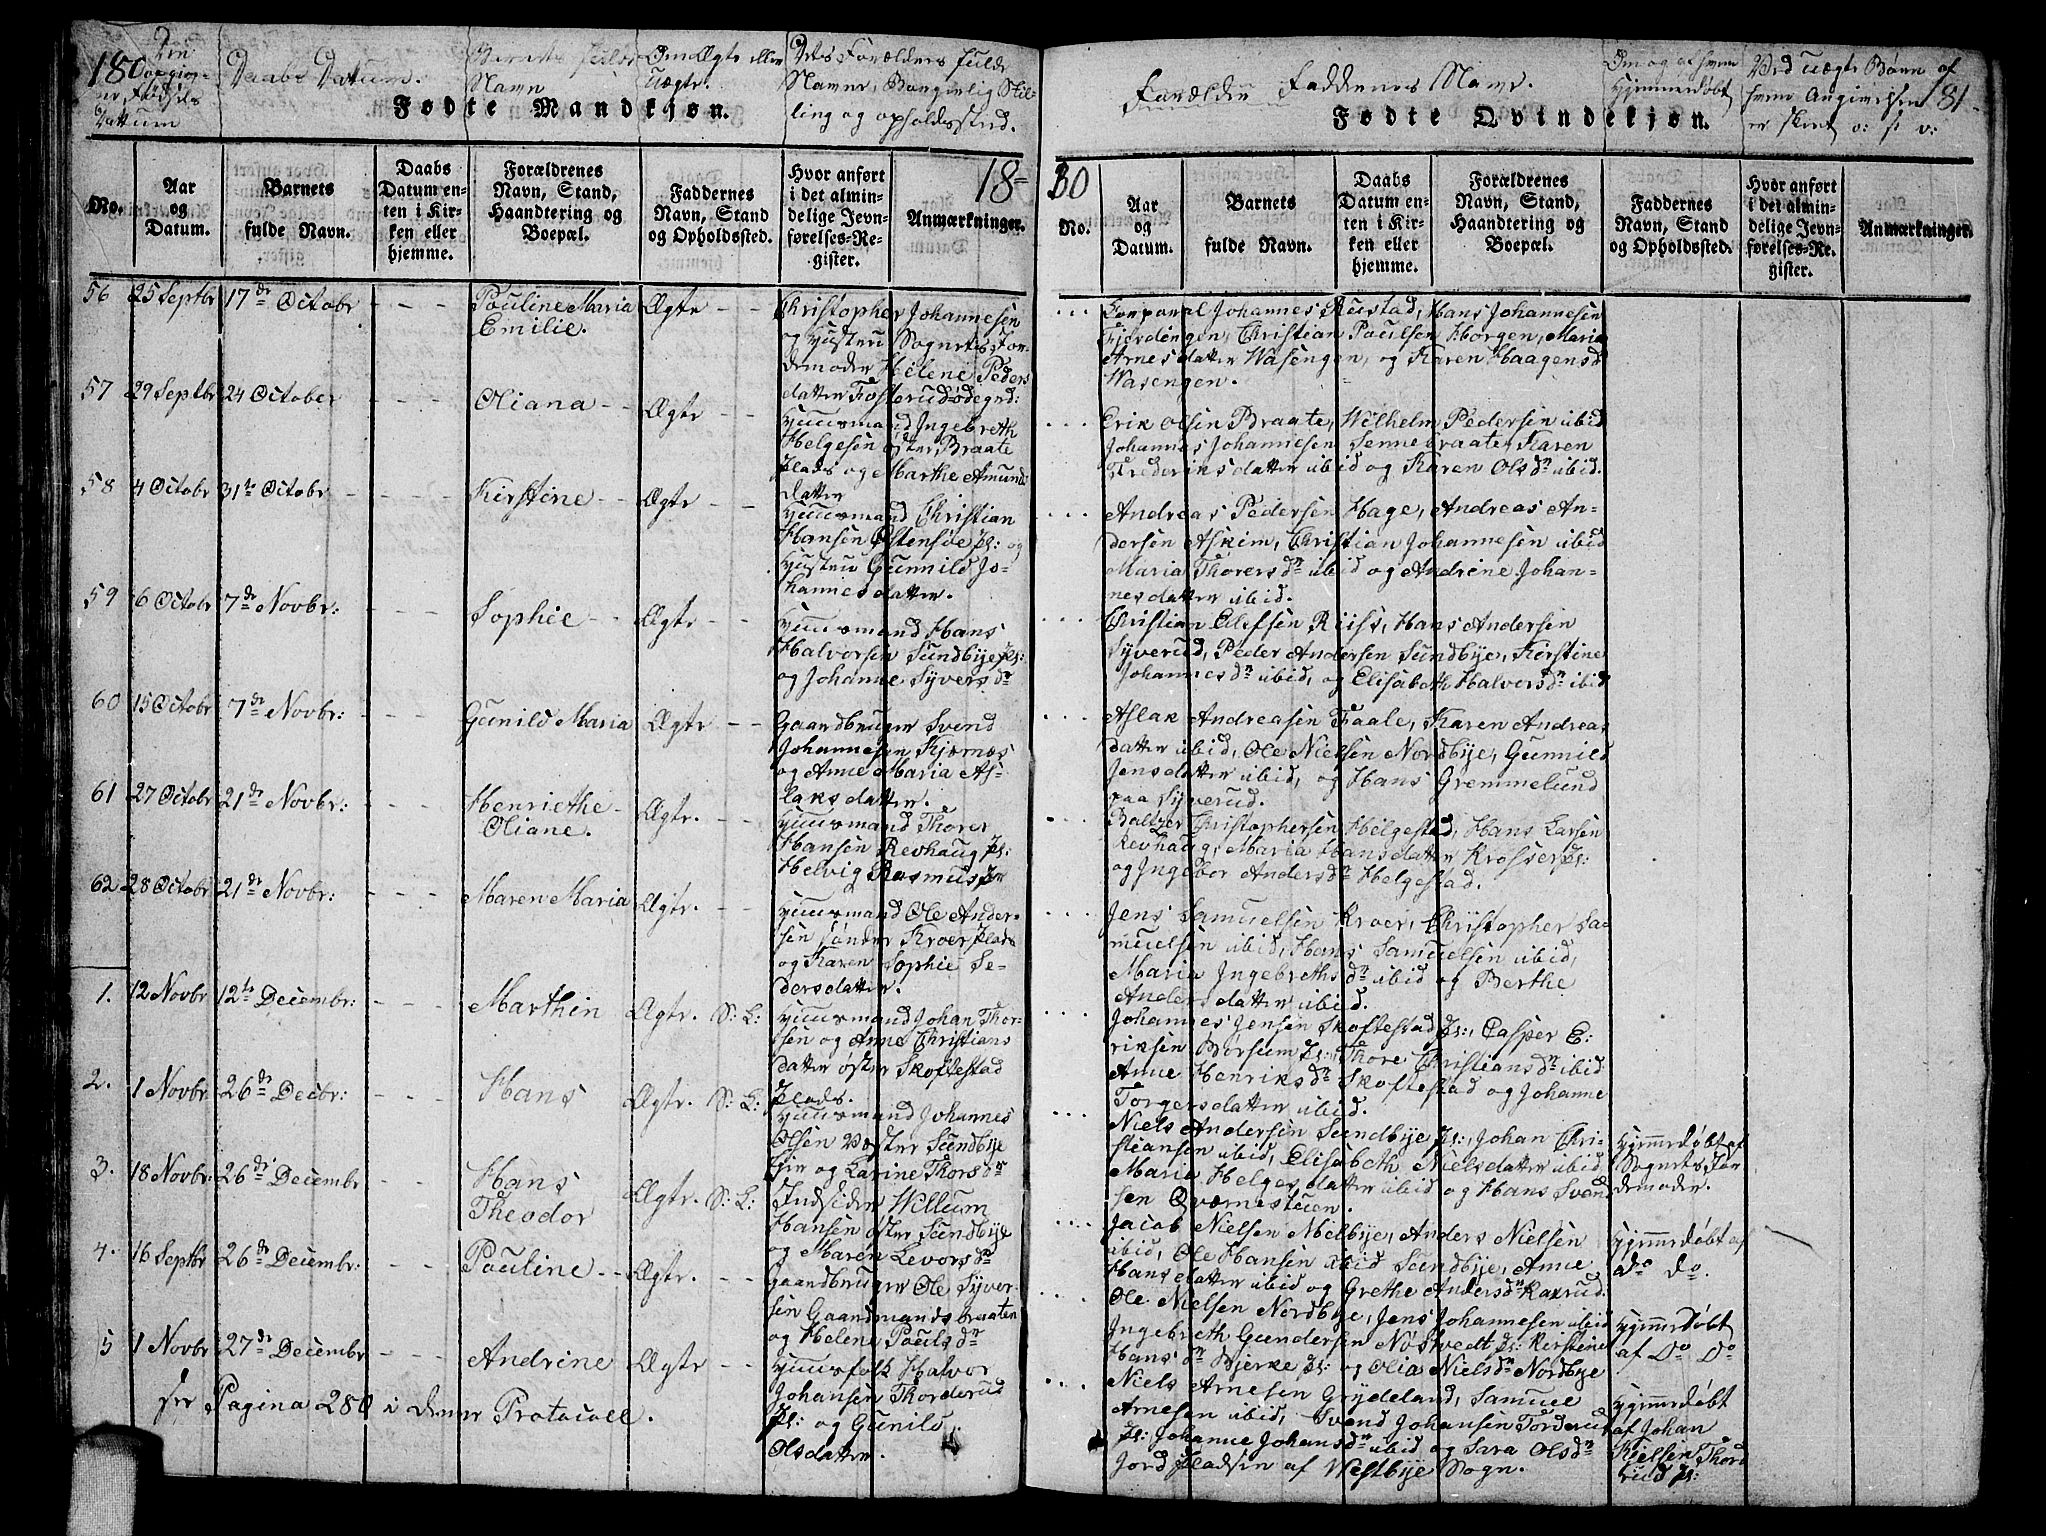 180
Den
opgivne
Fødsels
Dattum
Daabs Datum.
Barnets fulde
Navn
Om Ægte eller
Uægte.
Dets Forældres fulde
Navne, Borgerlig Stil-
ling og opholdssted.
Fødte Mandkjøn.
No.
Aar og Datum.
Barnets fulde Navn.
Daabs Datum en- ten i Kir- ken eller hjemme.
Forældrenes Navn, Stand, Haandtering og Boepæl.
Faddernes Navn, Stand og Opholdssted.
Hvor anført i det almin- delige Jevn- førelses-Re- gister.
Anmærkninger.
18=
56 25 Septbr 17de Octobr - - - Pauline Maria Emilie. Ægte - -
Christopher Johannesen
og Hustru Sognets Jor
demoder Helene Peders
datter Fosterudødegrd:
57 29 Septbr 24 October - - - Oliana - - Ægte - -
Huusmand Ingebreth
Helgesen øster Braate
Plads og Marthe Amunds
datter
58 4 Octobr 31te Octobr - - - Kirstine - - Ægte - -
Huusmand Christian
Hansen Østensøe Pl: og
Hustru Gunnild Jo-
hannesdatter.
59 6 Octobr 7de Novbr: - - - Sophie - - Ægte - -
Huusmand Hans
Halvorsen Sundbye Pl:
og Johanne Syversdr
60 15 Octobr 7de Novbr: - - - Gunild Maria Ægte - -
Gaardbruger Svend
Johannesen Kjærnæs
og Anne Maria As-
laksdatter.
61 27 Octobr 21de Novbr: - - - Henriethe Oliane. Ægte. - -
Huusmand Thorer
Hansen Revhaug Pl:
Helvig Rasmusdr
62 28 Octobr 21de Novbr: - - - Maren Maria Ægte. - -
Huusmand Ole Ander-
sen sønder Kroer Plads
og Karen Sophie Pe-
dersdatter.
1. 12 Novbr 12te Decembr: - - - Marthin Ægte. S: L:
Huusmand Johan Thor-
sen og Anne Christians
datter øster Skoftestad
Plads.
2. 1 Novbr. 26de Decbr: - - - Hans Ægte. S: L:
Huusmand Johannes
Olsen Vester Sundbye
Eje og Larine Thorsdr
3. 18 Novbr: 26de Decembr Hans Theodor Ægte. S: L:
Indsidder Willum
Hansen øster Sundbye
og Maren Levorsdr
4. 16 Septbr 26de Decembr: Pauline - - Ægte. - -
Gaardbruger Ole Syver-
sen Gaardmandsbraaten
og Helene Paulsdr
5 1 Novbr 27de Decembr - - - Andrine Ægte - -
Huusfolk Halvor
Johansen Thorderud
Pl: og Gunild
Olsdatter.
see Pagina 280 i denne Protocoll.
Forældre Faddernes Navne.
Om og af hvem
Hjemmedøbt
Ved uægte Børn af
hvem Angivelsen
er skeet o: s: v:
181
Fødte Qvindekjøn.
30
No.
Aar og Datum.
Barnets fulde Navn.
Daabs Datum en- ten i Kir- ken eller hjemme.
Forældrenes Navn, Stand, Haandtering og Boepæl.
Faddernes Navn, Stand og Opholdssted.
Hvor anført i det almin- delige Jevn- førelses-Re- gister.
Anmærkninger.
Corporal Johannes Rustad, Hans Johannesen
Fjerdingen, Christian Paulsen Horgen, Maria
Arnesdatter Wasengen, og Karen Haagensdr
Wasengen.
Erik Olsen Braate, Wilhelm Pedersen ibid
Johannes Johannesen Sennebraate, Karen
Frederiksdatter ibid og Karen Olsdr ibid.
Andreas Pedersen Hage, Andreas An-
dersen Askim, Christian Johannesen ibid
Maria Thorersdr ibid og Andrine Johan-
nesdatter ibid.
Christian Ellefsen Riiss, Hans Andersen
Syverud, Peder Andersen Sundbye, Kirstine
Johannesdr ibid, og Elisabeth Halversdr ibid
Aslak Andreasen Faale, Karen Andreas
datter ibid, Ole Nielsen Nordbye, Gunnild
Jensdatter ibid, og Hans Gremmelund
paa Syverud.
Baltzer Christophersen Helgestad, Hans Larsen
Revhaug, Maria Hansdatter Krosser Pl:
og Ingebor Andersdr Helgestad.
Jens Samuelsen Kroer, Christopher Sa-
muelsen ibid, Hans Samuelsen ibid,
Maria Ingebrethsdr ibid og Berthe
Andersdatter ibid.
Johannes Jensen Skoftestad Pl:, Casper E:
riksen Børsum Pl:, Thore Christiansdr ibid
Anne Henriksdr Skoftestad og Johanne
Torgersdatter ibid.
Niels Andersen Sundbye Pl:, Johan Chri-
stiansen ibid, Elisabeth Nielsdatter ibid
Maria Helgesdatter ibid og Hans Svend
sen Qværnestuen.
Hjemmedøbt af
Sognets Jor
demoder.
Jacob Nielsen Melbye, Anders Nielsen
ibid, Ole Hansen ibid Sundbye, Anne
Hansdatter ibid og Grethe Andersdr Raxrud.
Hjemmedøbt af
Do Do.
Ole Nielsen Nordbye, Jens Johannesen ibid
Ingebreth Gundersen Nøstvedt Pl: Kirstine
Hansdr Bjerke Pl: og Olia Nielsdr Nordbye
Hjemmedøbt
af Do Do
Niels Arnesen Grydeland, Samuel
Arnesen ibid, Svend Johansen Torderud
Pl: Johanne Johansdr ibid og Sara Olsdr
Jordpladsen af Westbye Sogn.
Hjemmedøbt
af Johan
Nielsen Thord
erud Pl: